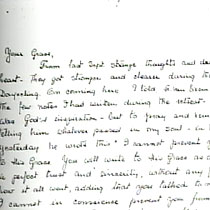 Your Grace,
From last Sept strange thoughts and des
heart. They got stronger and clearer during th
Darjeeling. On coming here I told F. Van Exem
the few notes I had written during the retreat.
was God's inspiration - but to pray and rema
telling him whatever passed in my soul - in
Yesterday he wrote this "I cannot prevent y
to His Grace. You will write to His Grace as a
in perfect trust and sincerity, without any
how it all went, adding that you talked to me
I cannot in conscience prevent you from